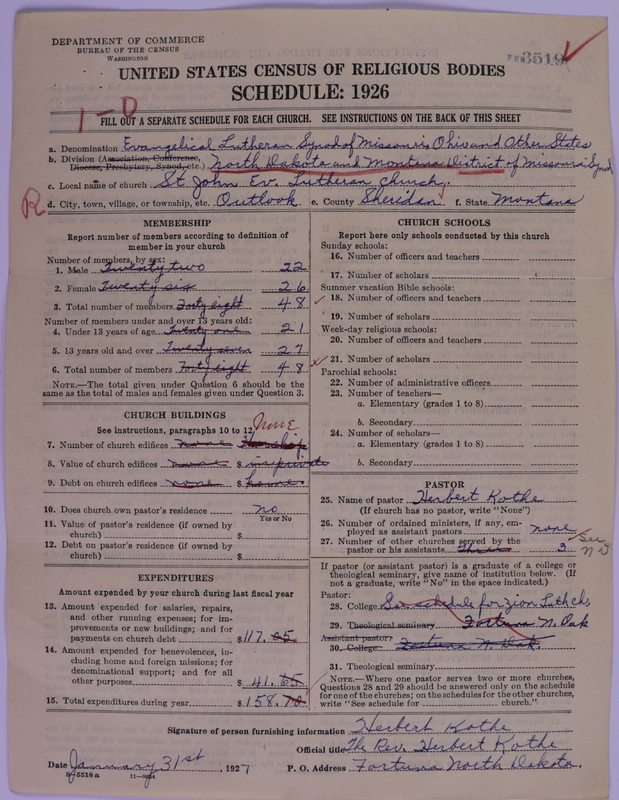 DEPARTMENT OF COMMERCE
BUREAU OF THE CENSUS
WASHINGTON
FEB 3519
UNITED STATES CENSUS OF RELIGIOUS BODIES
SCHEDULE: 1926
1-D
FILL OUT A SEPARATE SCHEDULE FOR EACH CHURCH. SEE INSTRUCTIONS ON THE BACK OF THIS SHEET
a. Denomination Evangelical Lutheran Synod of Missouri Ohio and Other States
b. Division (Association, Conference, Diocese, Presbytery, Synod, etc.) North Dakota and Montana District of Missouri Synod
c. Local name of church St. John's Ev. Lutheran Church,
R
d. City, town, village, or township, etc. Outlook e. County Sheridan f. State Montana
MEMBERSHIP
Report number of members according to definition of
member in your church
Number of members, by sex:
1. Male Twenty two 22
2. Female Twenty six 26
3. Total number of members Forty eight 48
Number of members under and over 13 years old:
4. Under 13 years of age Twenty one 21
5. 13 years old and over Twenty seven 27
6. Total number of members Forty eight 48
NOTE.—The total given under Question 6 should be the
same as the total of males and females given under Question 3.
CHURCH BUILDINGS
See instructions, paragraphs 10 to 12 None
7. Number of church edifices none Worship
8. Value of church edifices none $ in private
9. Debt on church edifices none $ home.
10. Does church own pastor's residence no
Yes or No
11. Value of pastor's residence (if owned by
church) $
12. Debt on pastor's residence (if owned by
church) $
EXPENDITURES
Amount expended by your church during last fiscal year
13. Amount expended for salaries, repairs,
and other running expenses; for im-
provements or new buildings; and for
payments on church debt $117.05
14. Amount expended for benevolences, in-
cluding home and foreign missions; for
denominational support; and for all
other purposes $ 41.65
15. Total expenditures during year $158.70
CHURCH SCHOOLS
Report here only schools conducted by this church
Sunday schools:
16. Number of officers and teachers
17. Number of scholars
Summer vacation Bible schools:
18. Number of officers and teachers
19. Number of scholars
Week-day religious schools:
20. Number of officers and teachers
21. Number of scholars
Parochial schools:
22. Number of administrative officers
23. Number of teachers—
a. Elementary (grades 1 to 8)
b. Secondary
24. Number of scholars—
a. Elementary (grades 1 to 8)
b. Secondary
PASTOR
25. Name of pastor Herbert Kothe
(If church has no pastor, write "None")
26. Number of ordained ministers, if any, em-
ployed as assistant pastors none
27. Number of other churches served by the
pastor or his assistants Three 3 See N D
If pastor (or assistant pastor) is a graduate of a college or
theological seminary, give name of institution below. (If
not a graduate, write "No" in the space indicated.)
Pastor:
28. College See schedule for Zion Luth ch,
29. Theological seminary Fortuna N. Dak
Assistant pastor:
30. College Fortuna N. Dak.
31. Theological seminary
NOTE.—Where one pastor serves two or more churches,
Questions 28 and 29 should be answered only on the schedule
for one of the churches; on the schedules for the other churches,
write "See schedule for church."
Signature of person furnishing information Herbert Kothe
Official title The Rev. Herbert Kothe
Date January 31st, 1927 P. O. Address Fortuna North Dakota.
8-5518 a 11-9054